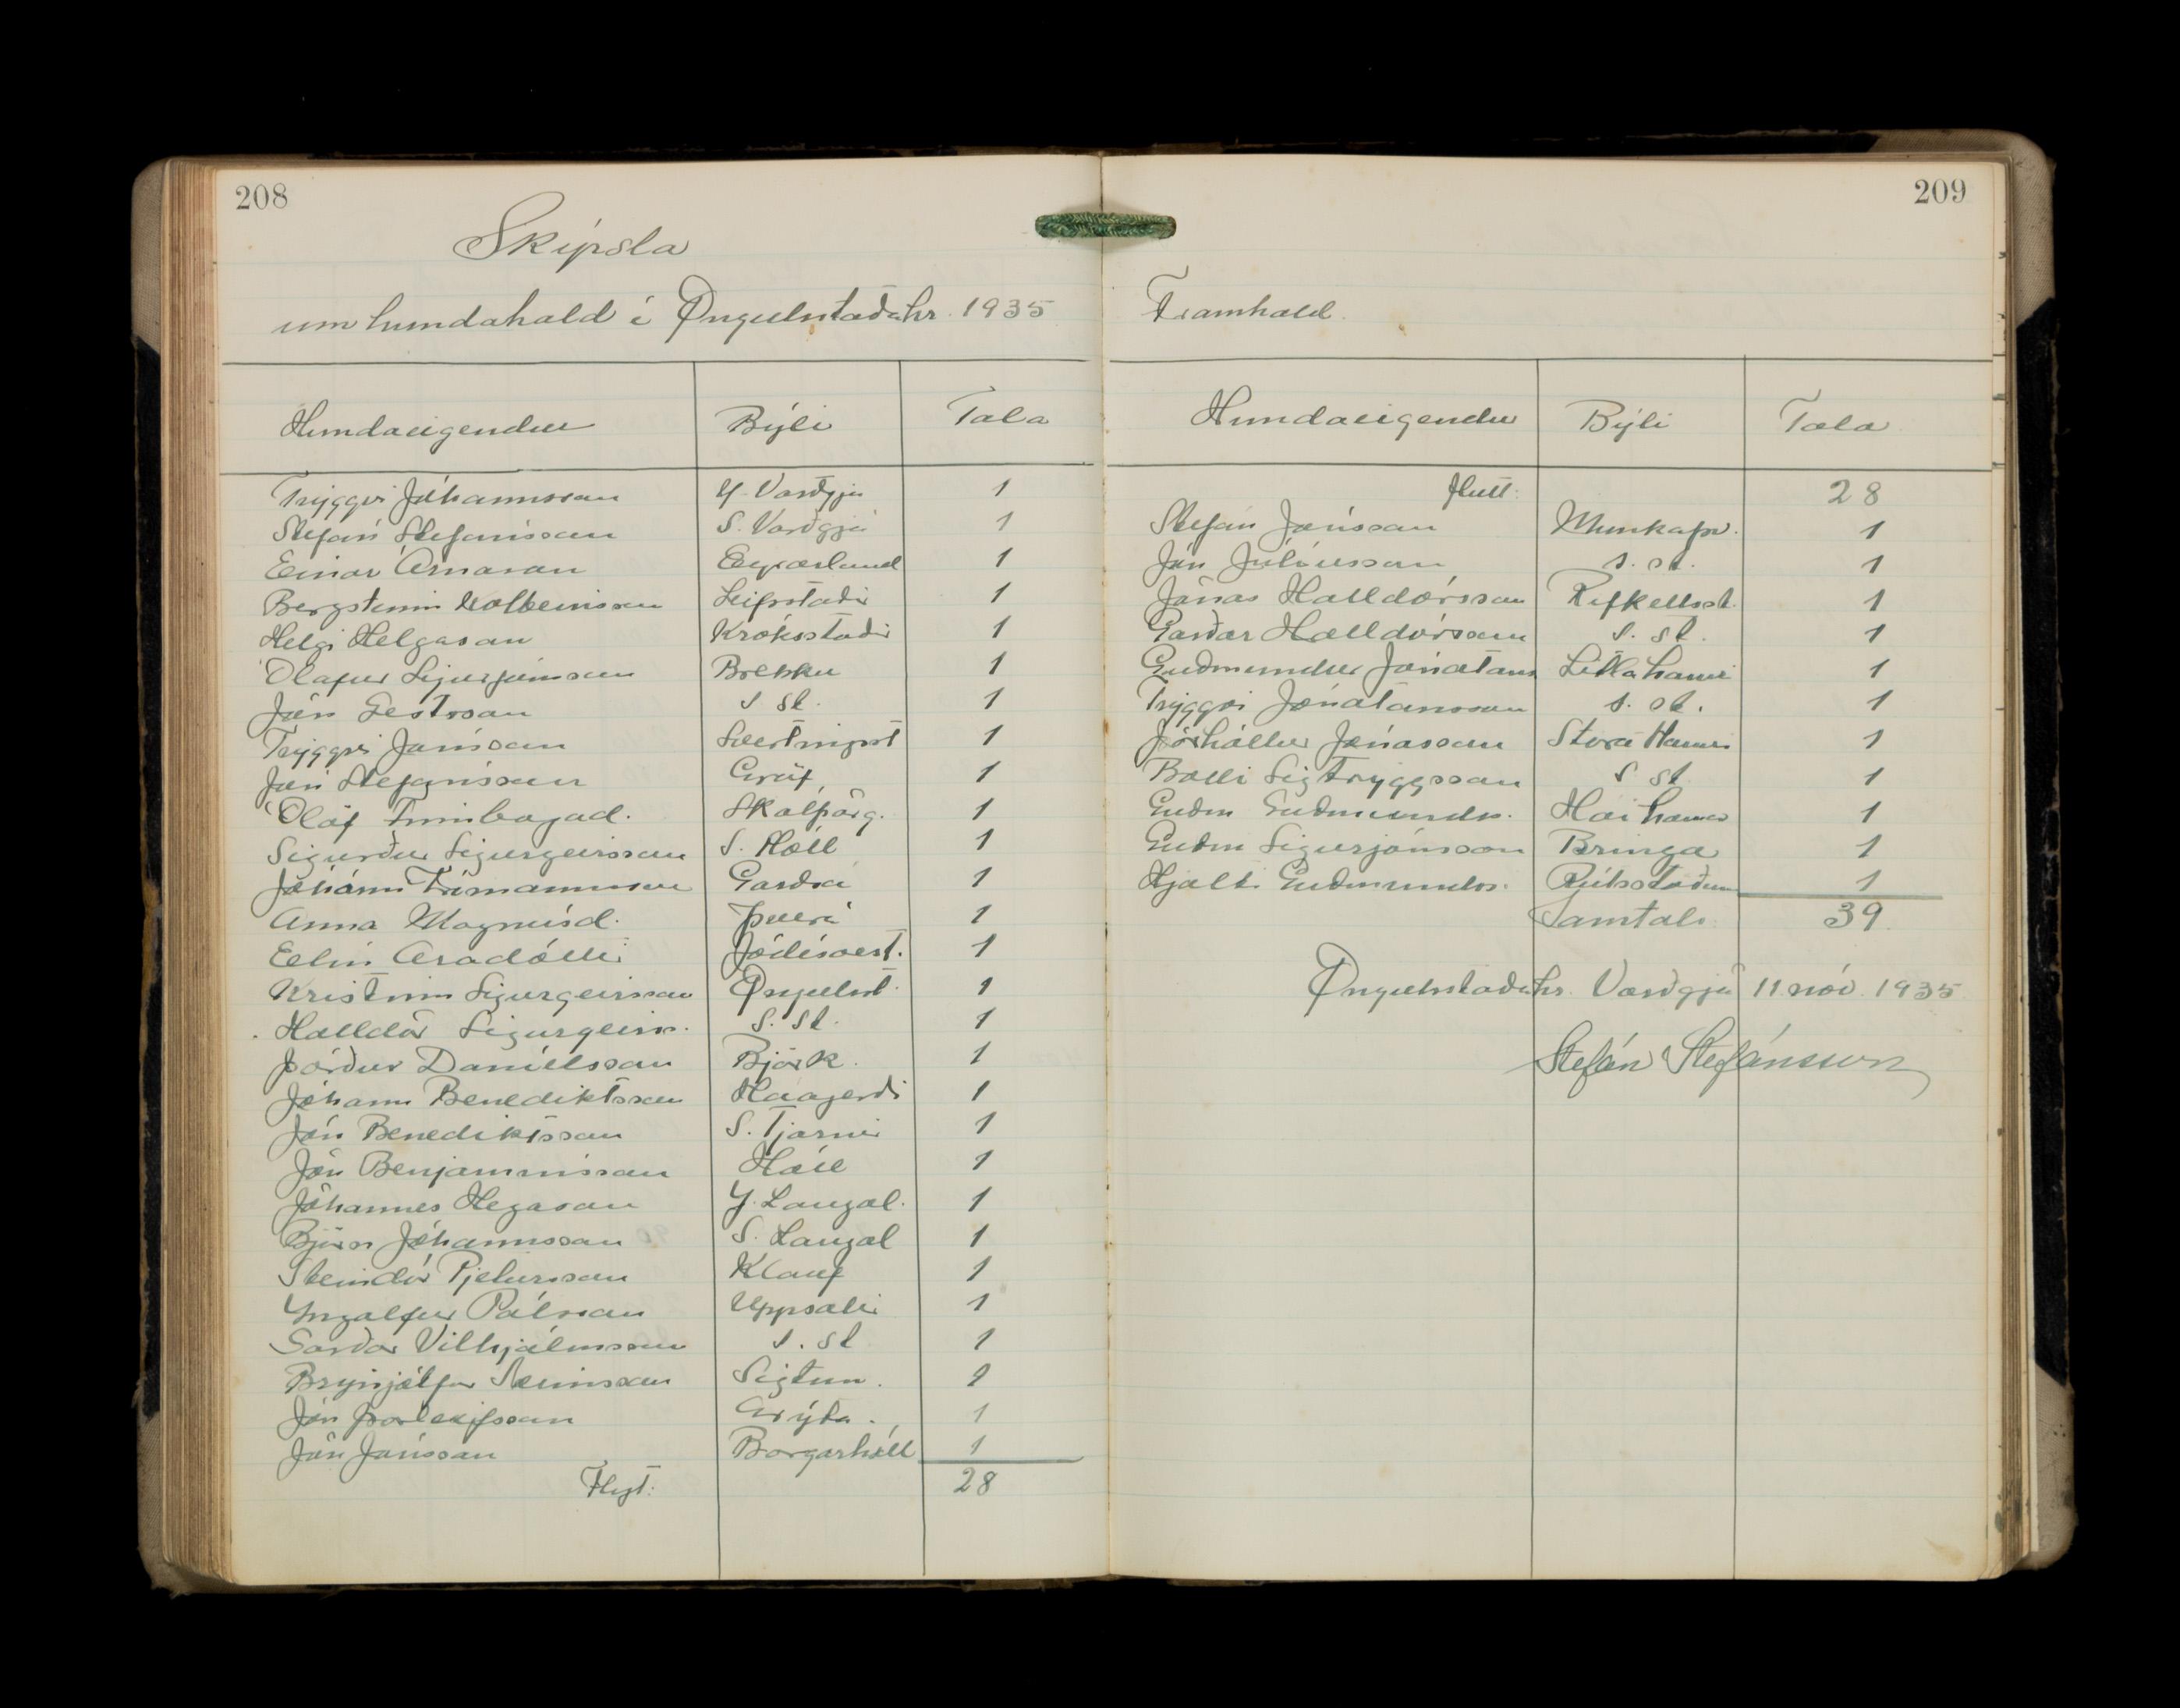 208
Skýrsla
um hundahald í Öngulstaðahr. 1935
Hundaeigendur Býli Tala
Tryggvi Jóhannsson Y-Varðgjá 1
Stefán Stefánsson S. Varðgjá 1
Einar Árnason Eyrarland 1
Bergsteinn Kolbeinsson Leifsstaðir 1
Helgi Helgason Króksstaðir 1
Ólafur Sigurjónsson Brekku 1
Jón Gestsson s st. 1
Tryggvi Jónsson Svertingsst 1
Jón Stefánsson Gröf 1
Ólöf Finnbogad. Skálpag. 1
Sigurður Sigurgeirsson S. Hóll 1
Jóhann Frímannsson Garðsá 1
Anna Magnúsd. Þverá 1
Elín Aradóttir Jódísarst. 1
Kristinn Sigurgeirsson Öngulst. 1
Halldór Sigurgeirss. S. St. 1
Þórður Daníelsson Björk. 1
Jóhann Benediktsson Háagerði 1
Jón Benediktsson S. Tjarnir 1
Jón Benjamínsson Hóll 1
Jóhannes Hegason Y. Laugal. 1
Björn Jóhannsson S. Laugal 1
Steindór Pjetursson Klauf 1
Yngolfur Pálsson Uppsalir 1
Garðar Vilhjálmsson s. st 1
Brynjólfur Sveinsson Sigtún. 1
Jón Þorleifsson Grýta. 1
Jón Jónsson Borgarhóll 1
Flyt: 28
209
Framhald.
Hundaeigendur Býli Tala
flutt: 28
Stefán Jónsson Munkaþv. 1
Jón Júlíusson s. st. 1
Jónas Halldórsson Rifkellsst. 1
Garðar Halldórsson s. st. 1
Guðmundur Jónatans Litlahamri 1
Tryggvi Jónatansson s. st. 1
Þórhallur Jónasson Stóra Hamri 1
Bolli Sigtryggsson s st 1
Guðm Guðmunds. Hái hamr 1
Guðm Sigurjónsson Bringa 1
Hjalti Guðmunds. Rútsstaðum 1
Samtals 39
Öngulsstaðahr. Varðgjá 11 nóv. 1935
Stefán Stefánsson